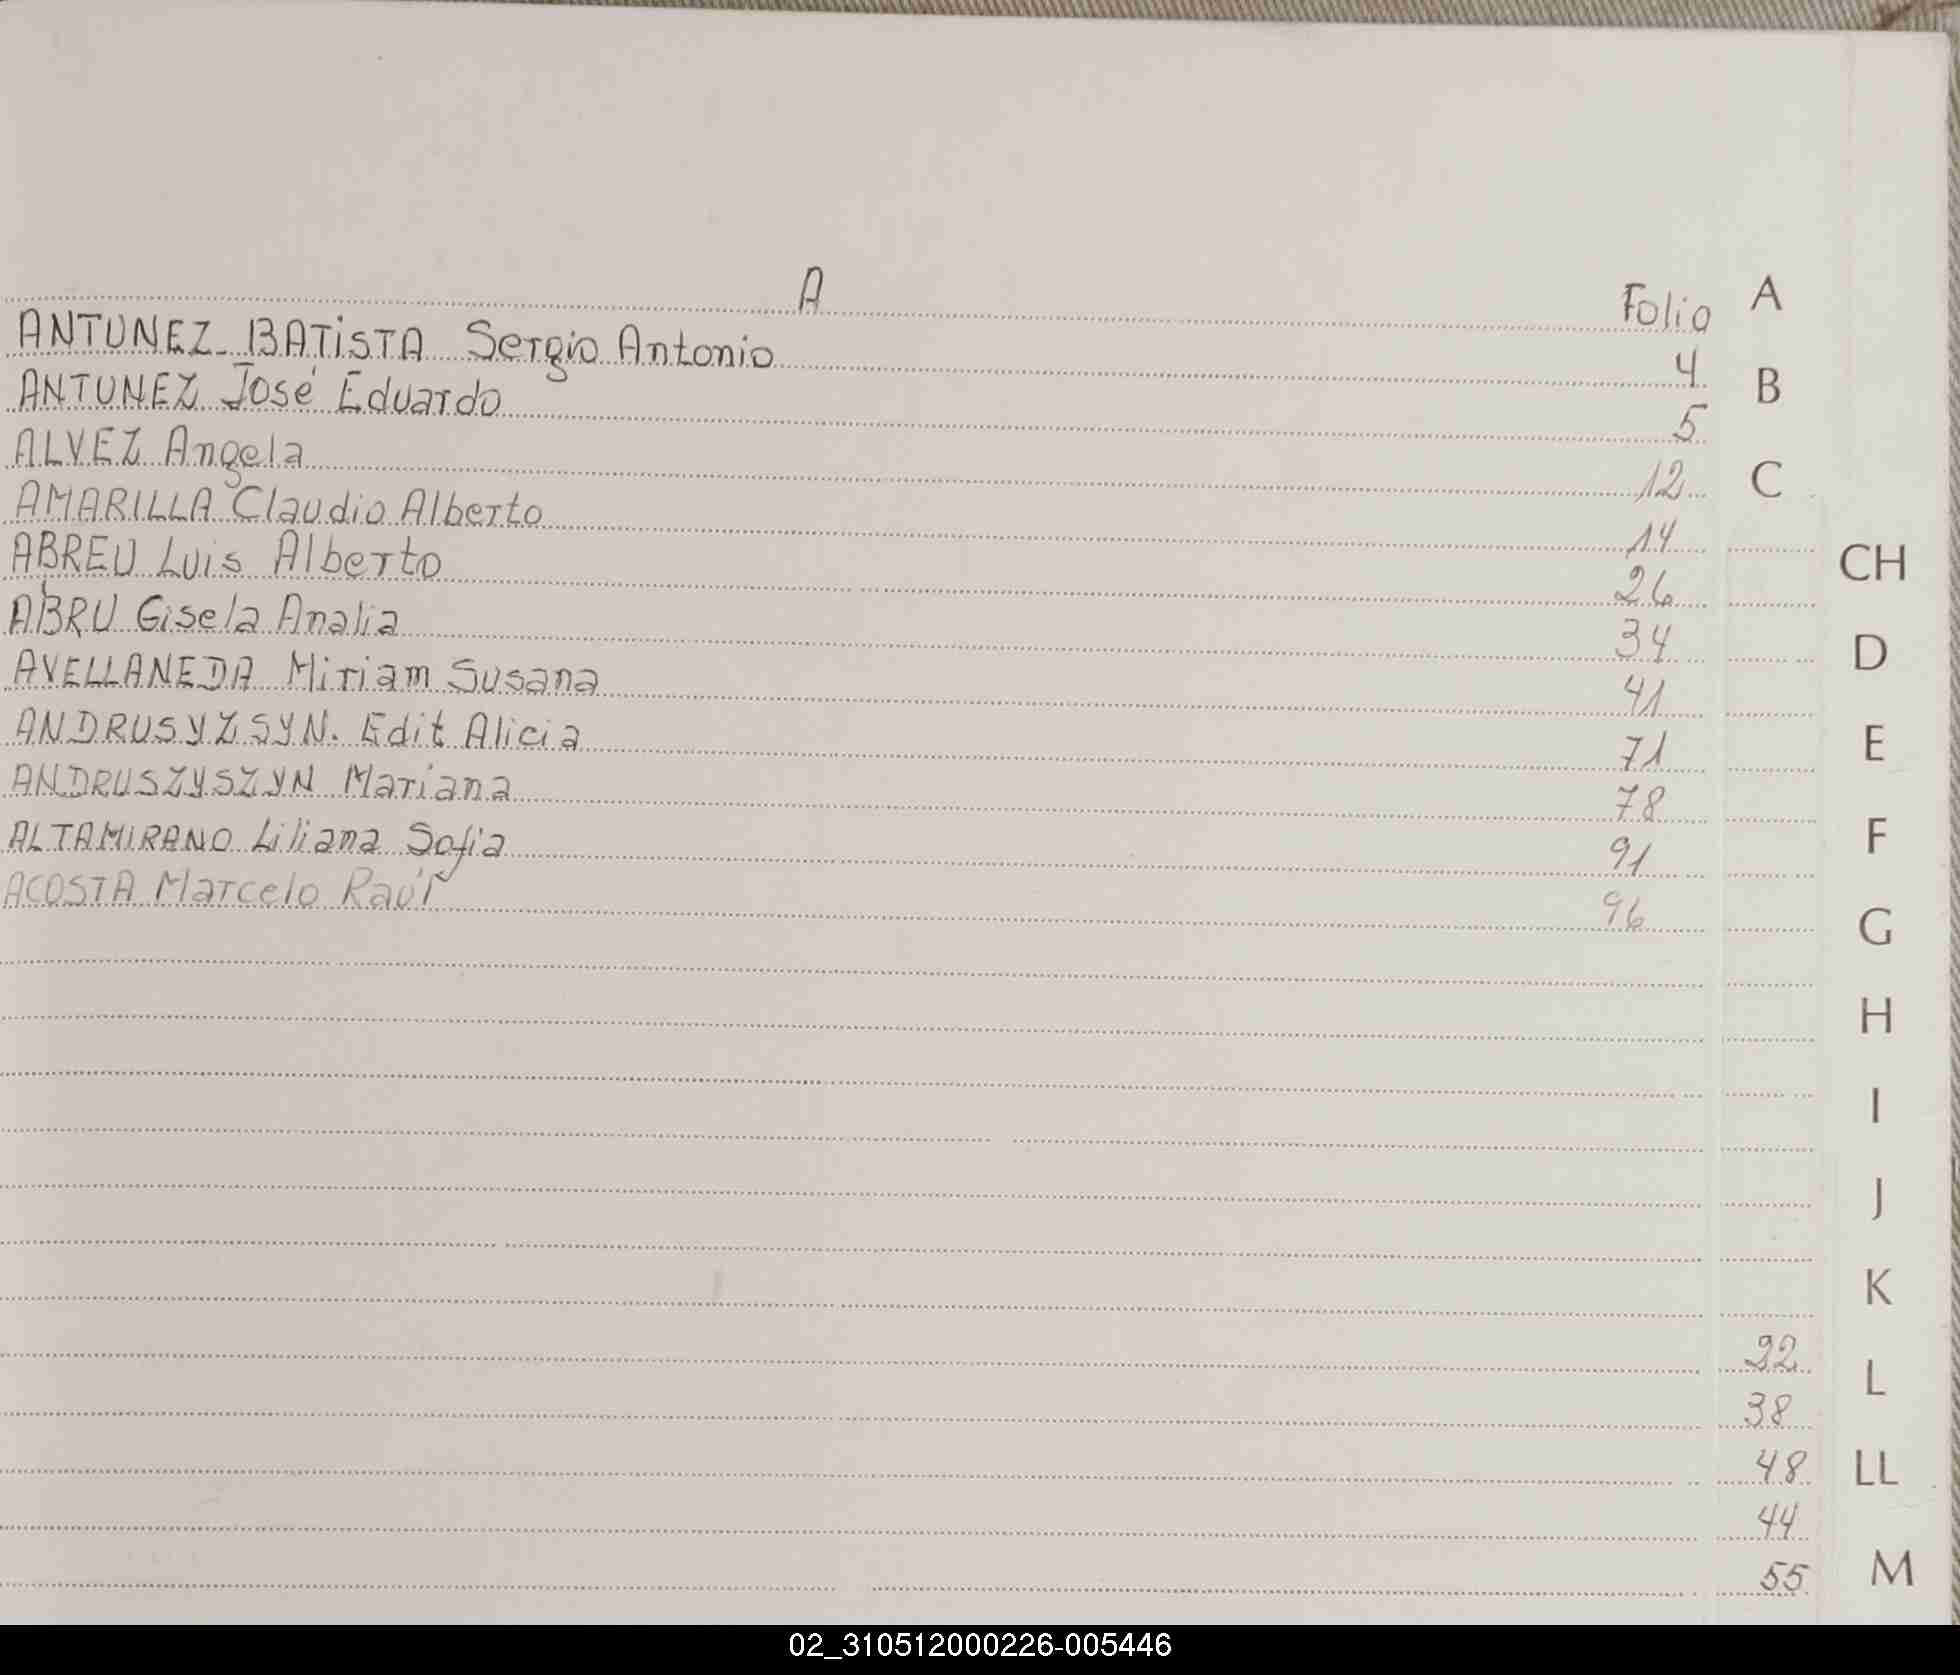 A Folio A
ANTUNEZ BATiSTA Sergio Antonio 4
B
ANTUNEZ José Eduardo 5
ALVEZ Angela 12
C
AMARILLA Claudio Alberto 14
CH
ABREU Luis Alberto 26
ABRU Gisela Analia 34
D
AVELLANEDA Miriam Susana 41
ANDRUSYZSYN. Edit Alicia 71
E
ANDRUSZYSZYN Mariana 78
ALTAMIRANO Liliana Sofia 91
F
ACOSTA Marcelo Raúl 96
G
H
I
J
K
22
L
38
48
LL
44
55
M
02_310512000226-005446